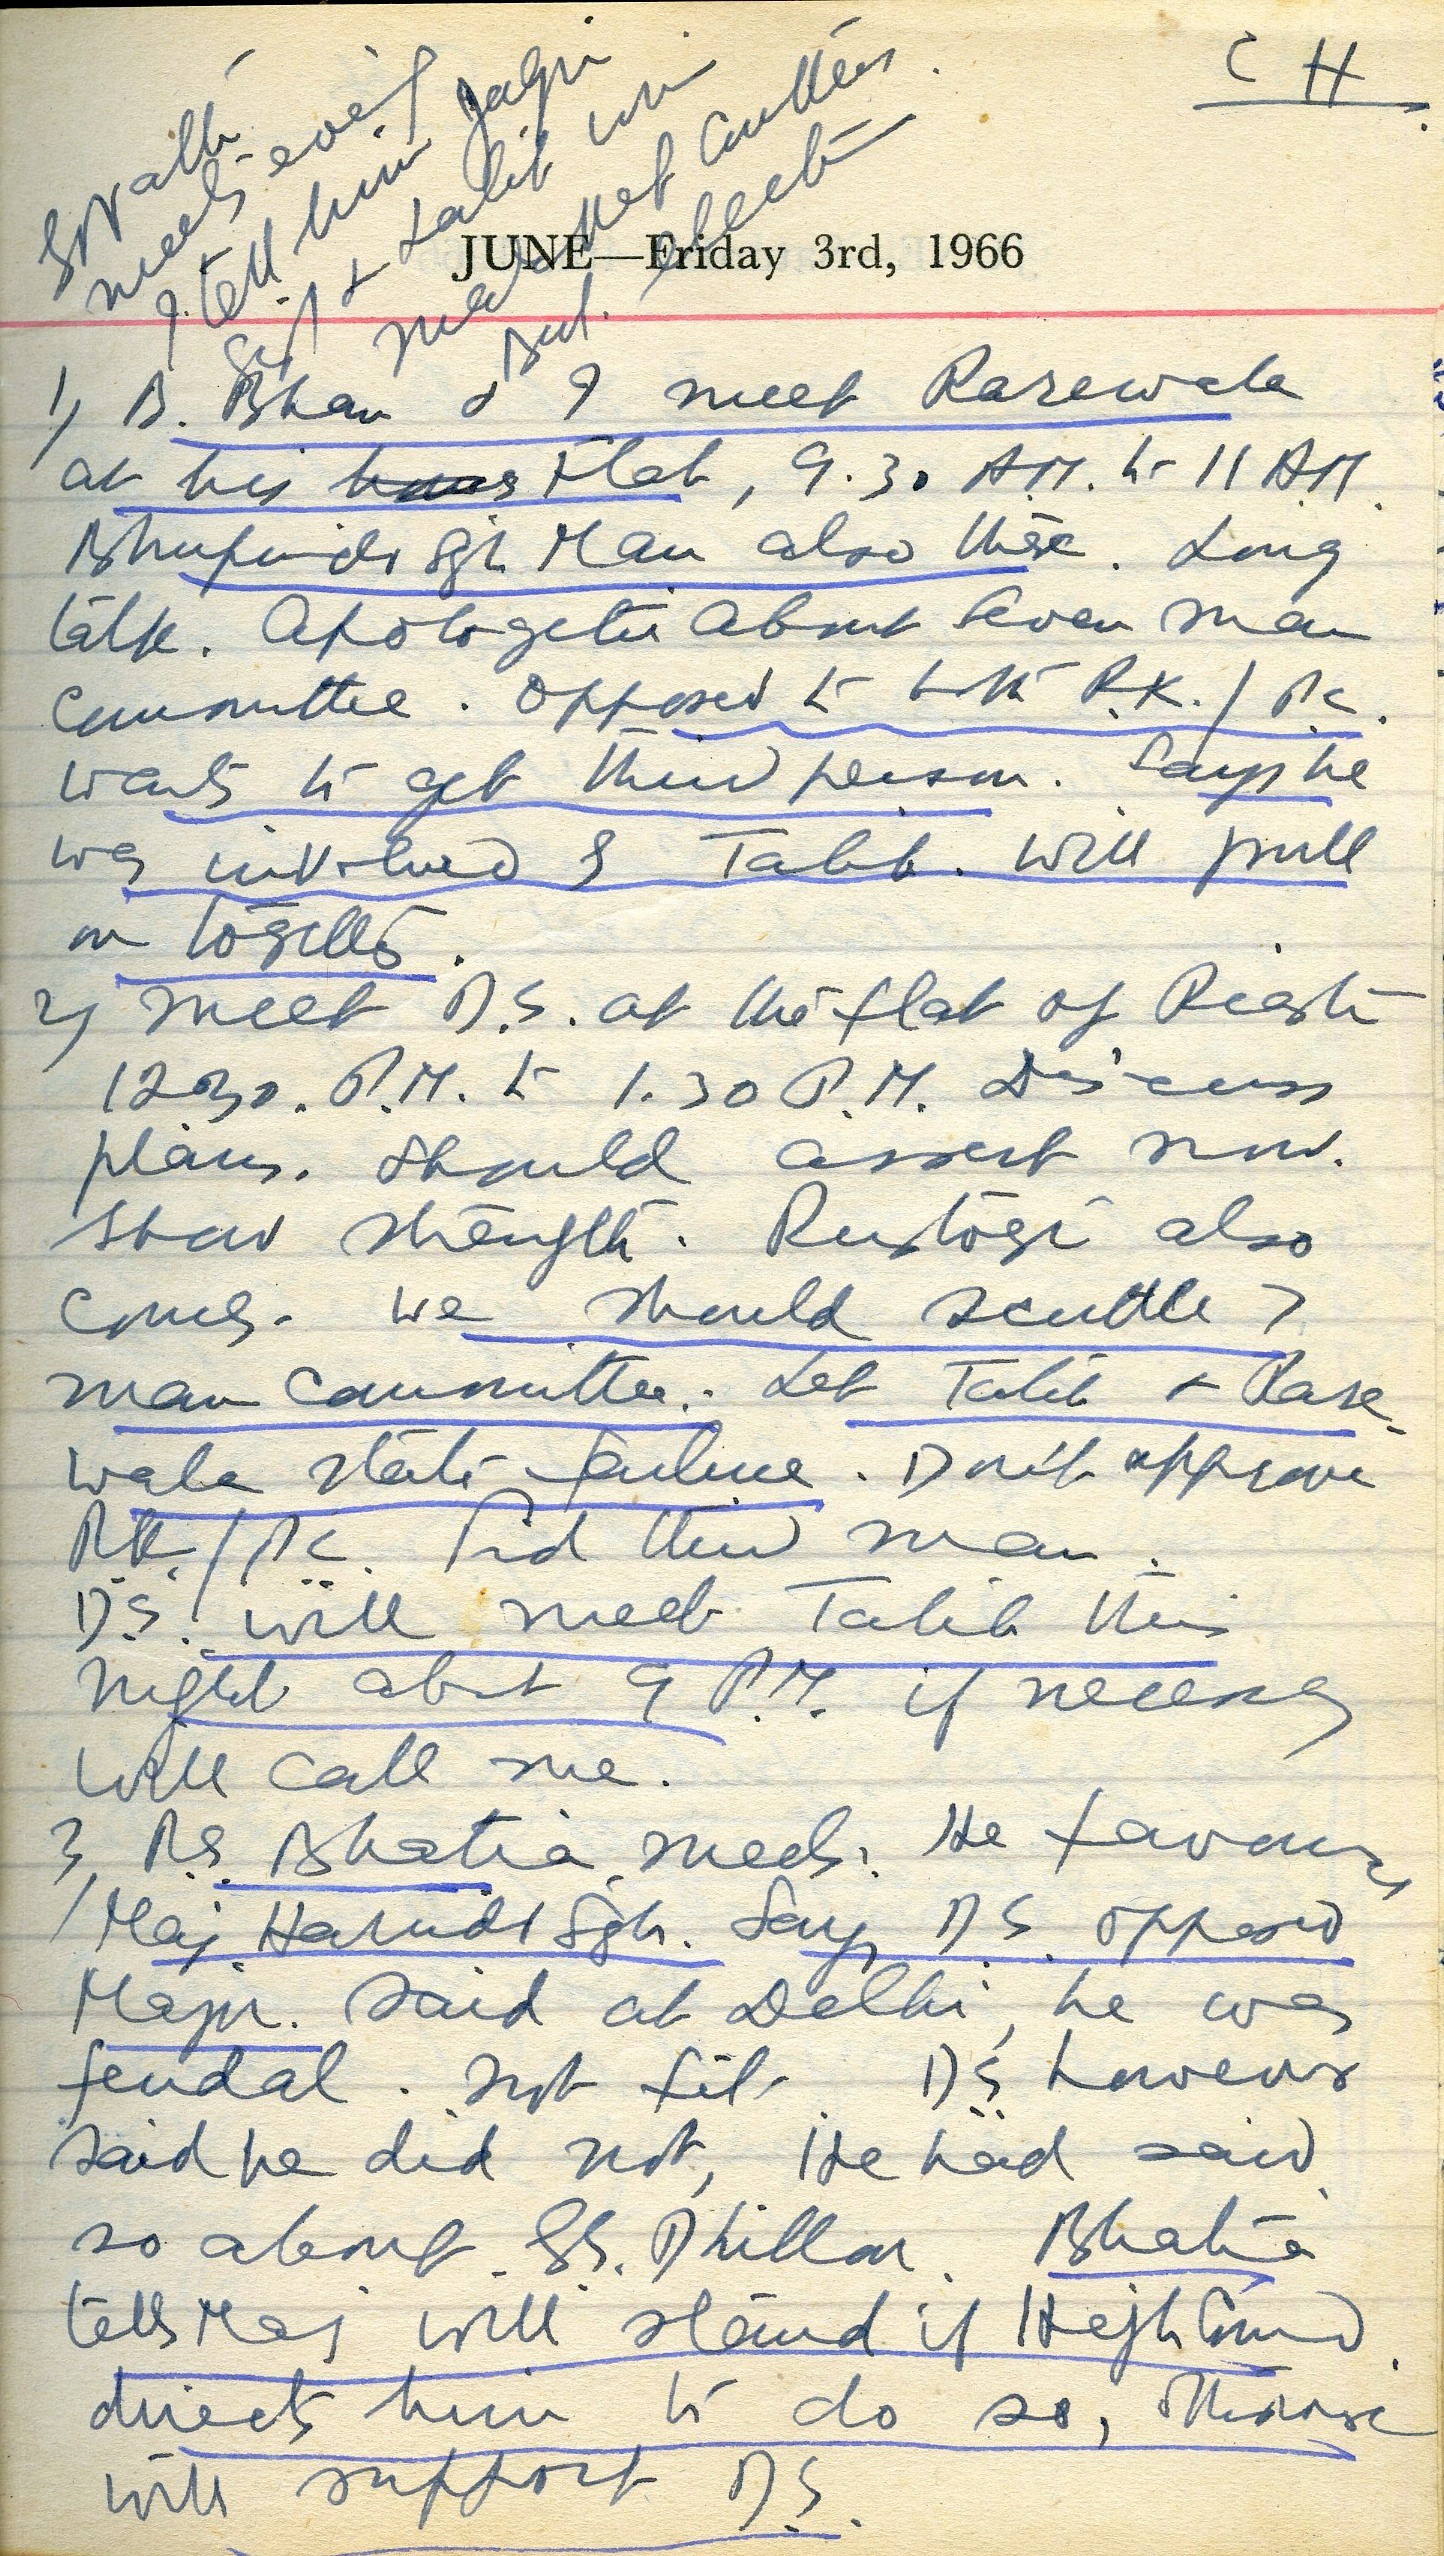 CH
meets
I tell him
& Talib
JUNE—Friday 3rd, 1966
1) B. Bhan & I meet Rarewala
at his Flat, 9.30 A.M. to 11 AM.
Bhupinder Sgh Man also there. Long
talk. Apologetic about Seven man
Committee. Opposed to both R.K./P.C.
wants to get third person. Says he
was involved & Talib. Will pull
on together.
2) meet D.S. at the flat of
12.30. P.M. to 1.30 P.M. Discuss
plans. Should assert now.
Show strength. Rustogi also
comes. We should scuttle 7
man Committee. Let Talib & Rare
wala state failure. Don't approve
R.K./P.C. Find third man.
D.S. will meet Talib this
night about 9 P.M. if necessary
will call me.
3) R.S. Bhatia meets. He favours
Maj Harinder Sgh. Says D.S. opposed
Major. Said at Delhi, he was
feudal. Not fit. D.S. however
said he did not, He had said
so about G.S. Dhillon. Bhatia
tells Maj will stand if High Comd.
directs him to do so, Otherwise
will support D.S.